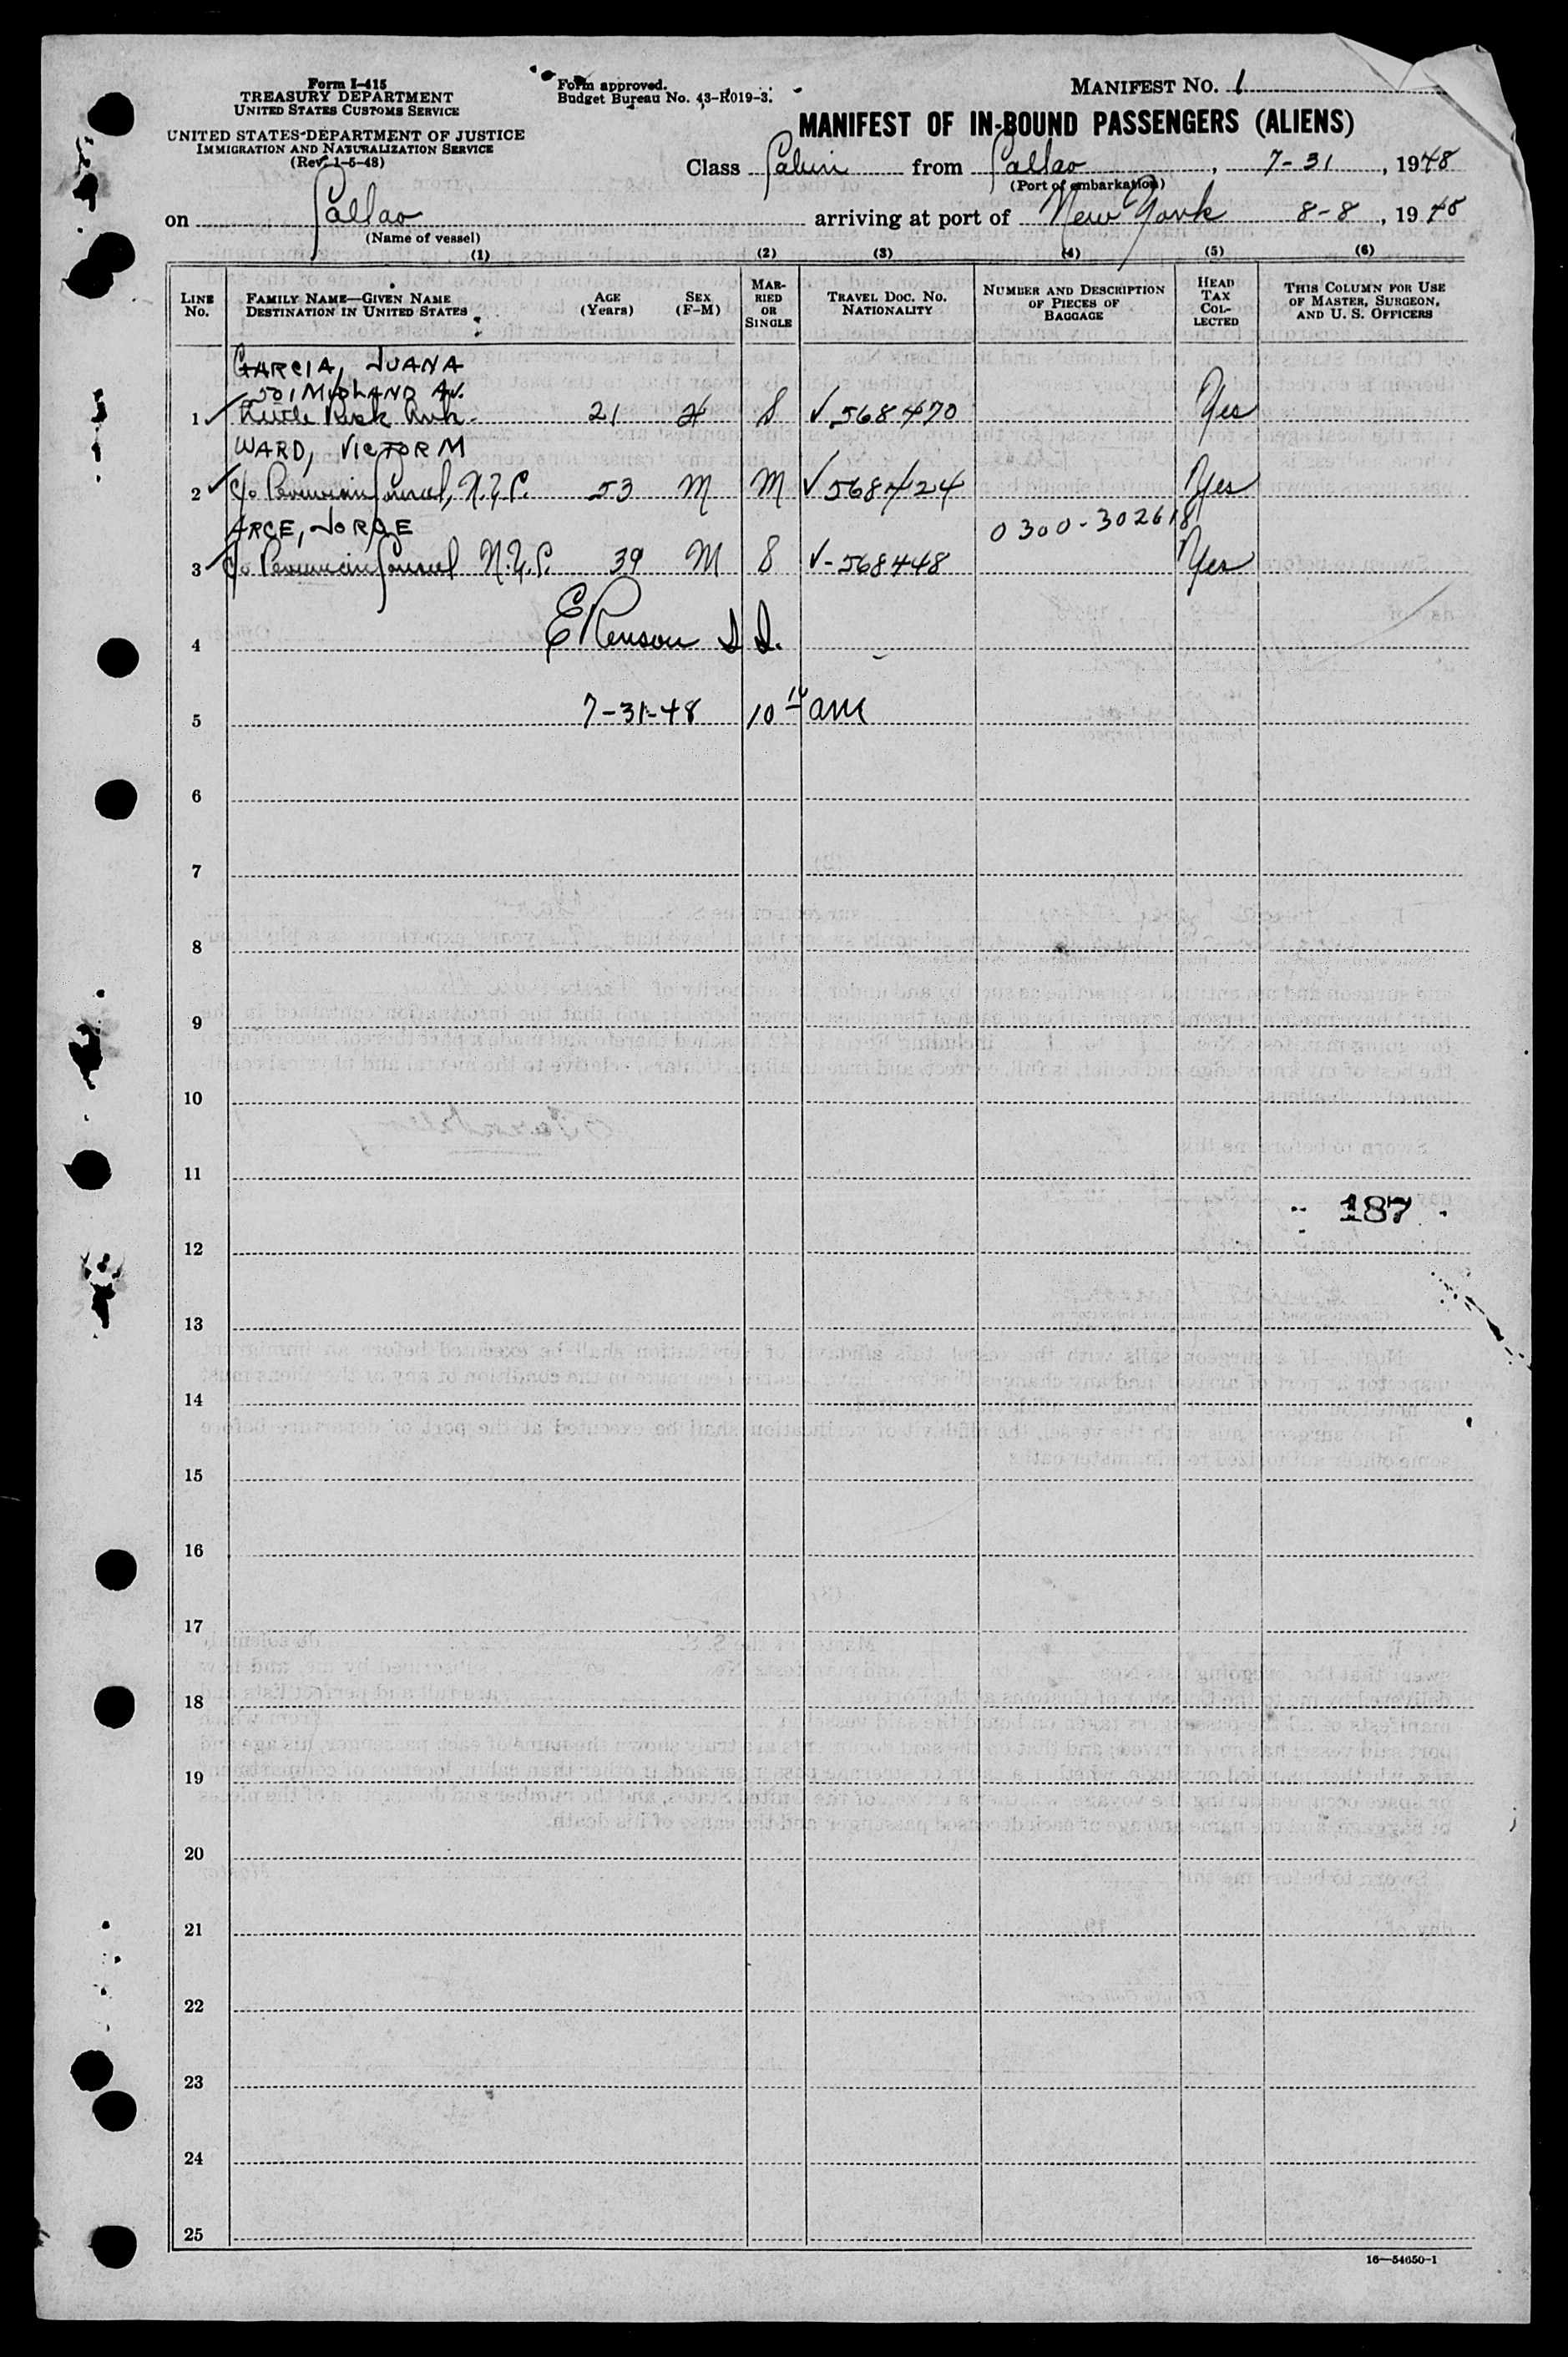 Form I-415
TREASURY DEPARTMENT
UNITED STATES CUSTOMS SERVICE
UNITED STATES DEPARTMENT OF JUSTICE
IMMIGRATION AND NATURALIZATION SERVICE
(Rev. 1-5-48)
Form approved.
Budget Bureau No. 43-R019-3.
MANIFEST NO. 1
MANIFEST OF IN-BOUND PASSENGERS (ALIENS)
Class Cabin from Callao, 7-31, 1948
(Port of embarkation)
on Callao arriving at port of New York 8-8, 1948
(Name of vessel)
(1) (2) (3) (4) (5) (6)
LINE No. FAMILY NAME—GIVEN NAME DESTINATION IN UNITED STATES AGE (Years) SEX (F-M) MARRIED OR SINGLE TRAVEL DOC. NO. NATIONALITY NUMBER AND DESCRIPTION OF PIECES OF BAGGAGE HEAD TAX COLLECTED THIS COLUMN FOR USE OF MASTER, SURGEON, AND U. S. OFFICERS
GARCIA, JUANA
501 MIDLAND AV.
1 Little Rock Ark. 21 S V 568470 Yes
WARD, VICTOR M
2 c/o Peruvian Consul, N.Y.C. 53 M M V 568424 Yes
ARCE, JORGE 0300-302618
3 c/o Peruvian Consul N.Y.C. 39 M S V-568448 Yes
4
5 7-31-48 10 am
6
7
8
9
10
11
187
12
13
14
15
16
17
18
19
20
21
22
23
24
25
16—54650-1